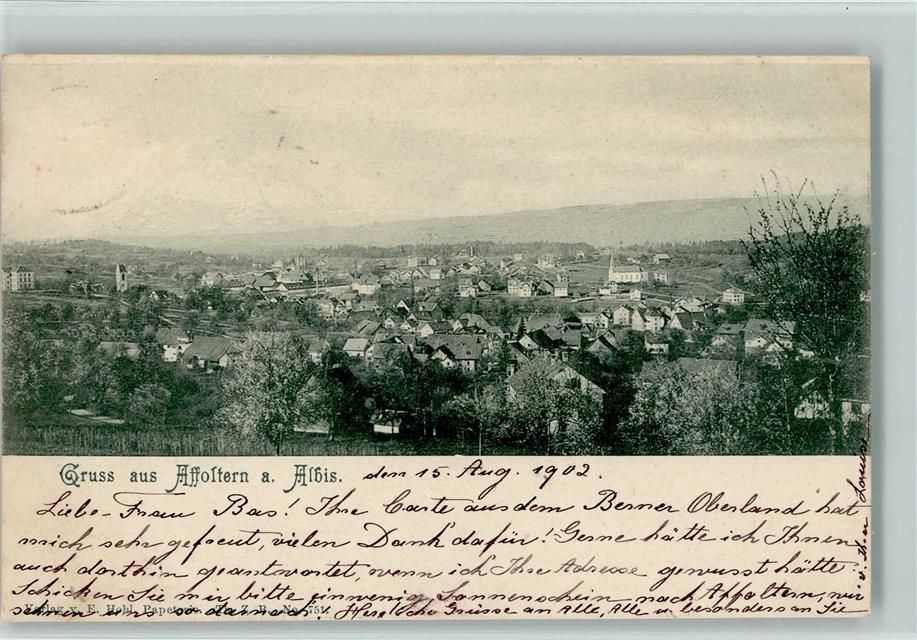 Gruss aus Affoltern a. Albis. den 15. Aug. 1902.
Liebe Frau Bas! Ihre Carte aus dem Berner Oberland hat
mich sehr gefreut, vielen Dank dafür! Gerne hätte ich Ihnen
auch dorthin geantwortet, wenn ich Ihre Adresse gewusst hätte
Schicken Sie mir bitte ein wenig Sonnenschein nach Affoltern, wir
sehnen uns so danach! Herzliche Grüsse an Alle, Alle u. besonders an Sie
Verlag v. E. Hobl, Papeterie. No. 751.
v. Ihrer Louise